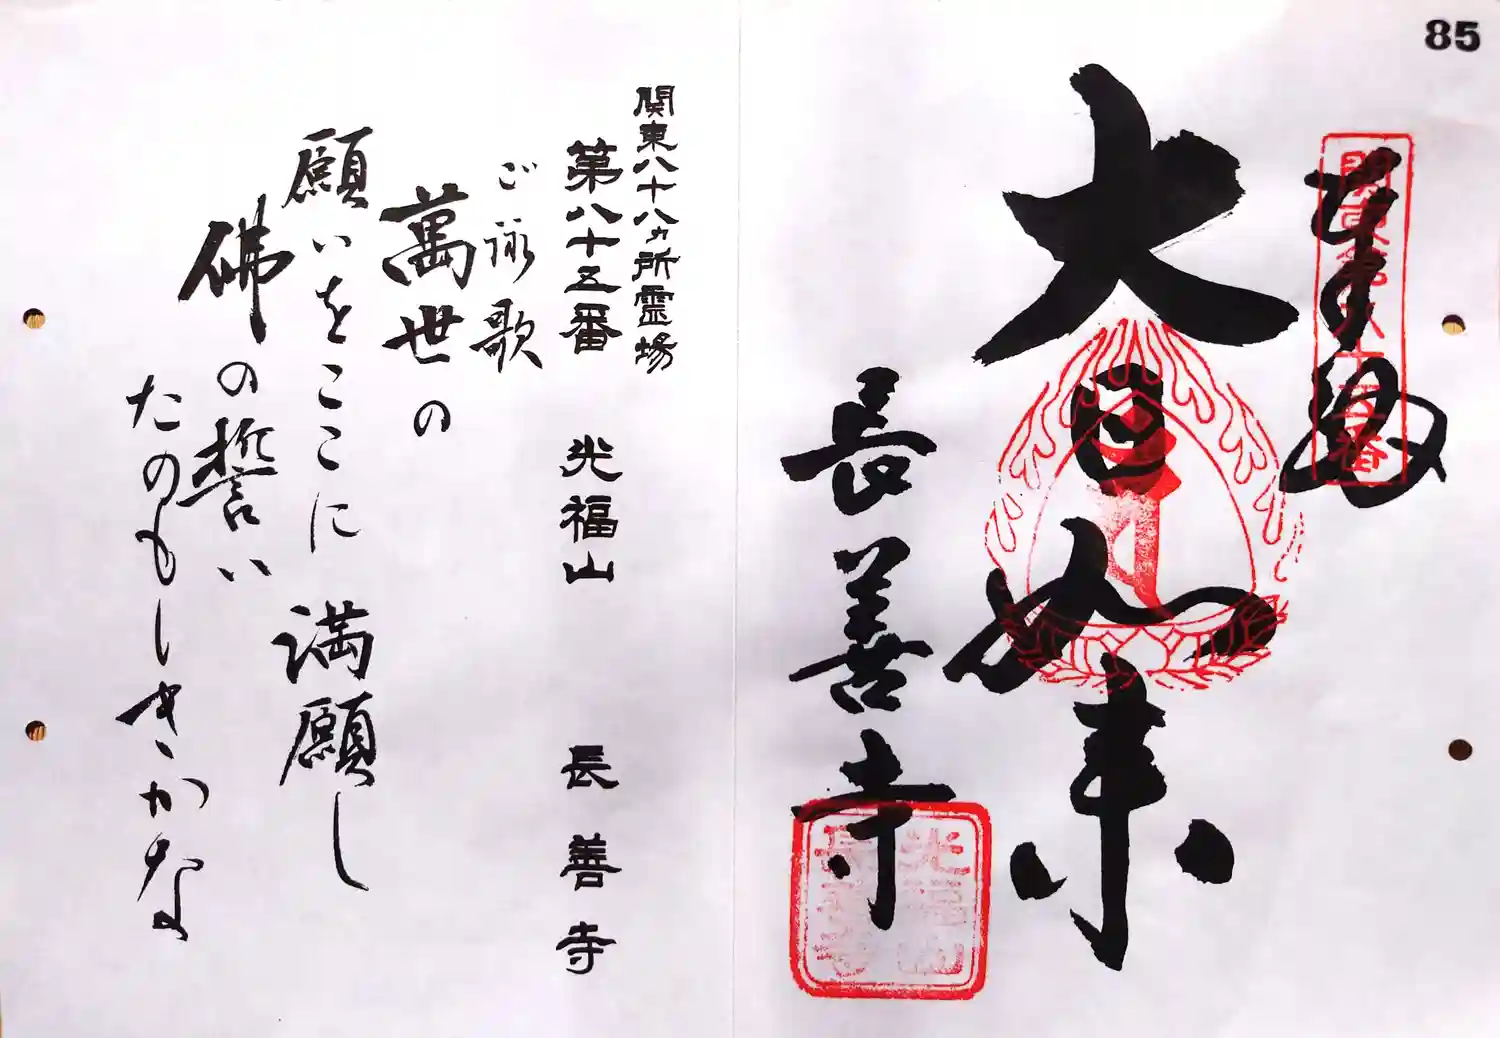 85
奉拝
関東第八十五番
大日如来
長善寺
光福山
長善寺
関東八十八ヵ所霊場
第八十五番 光福山 長善寺
ご詠歌
萬世の
願いをここに満願し
佛の誓い
たのもしきかな